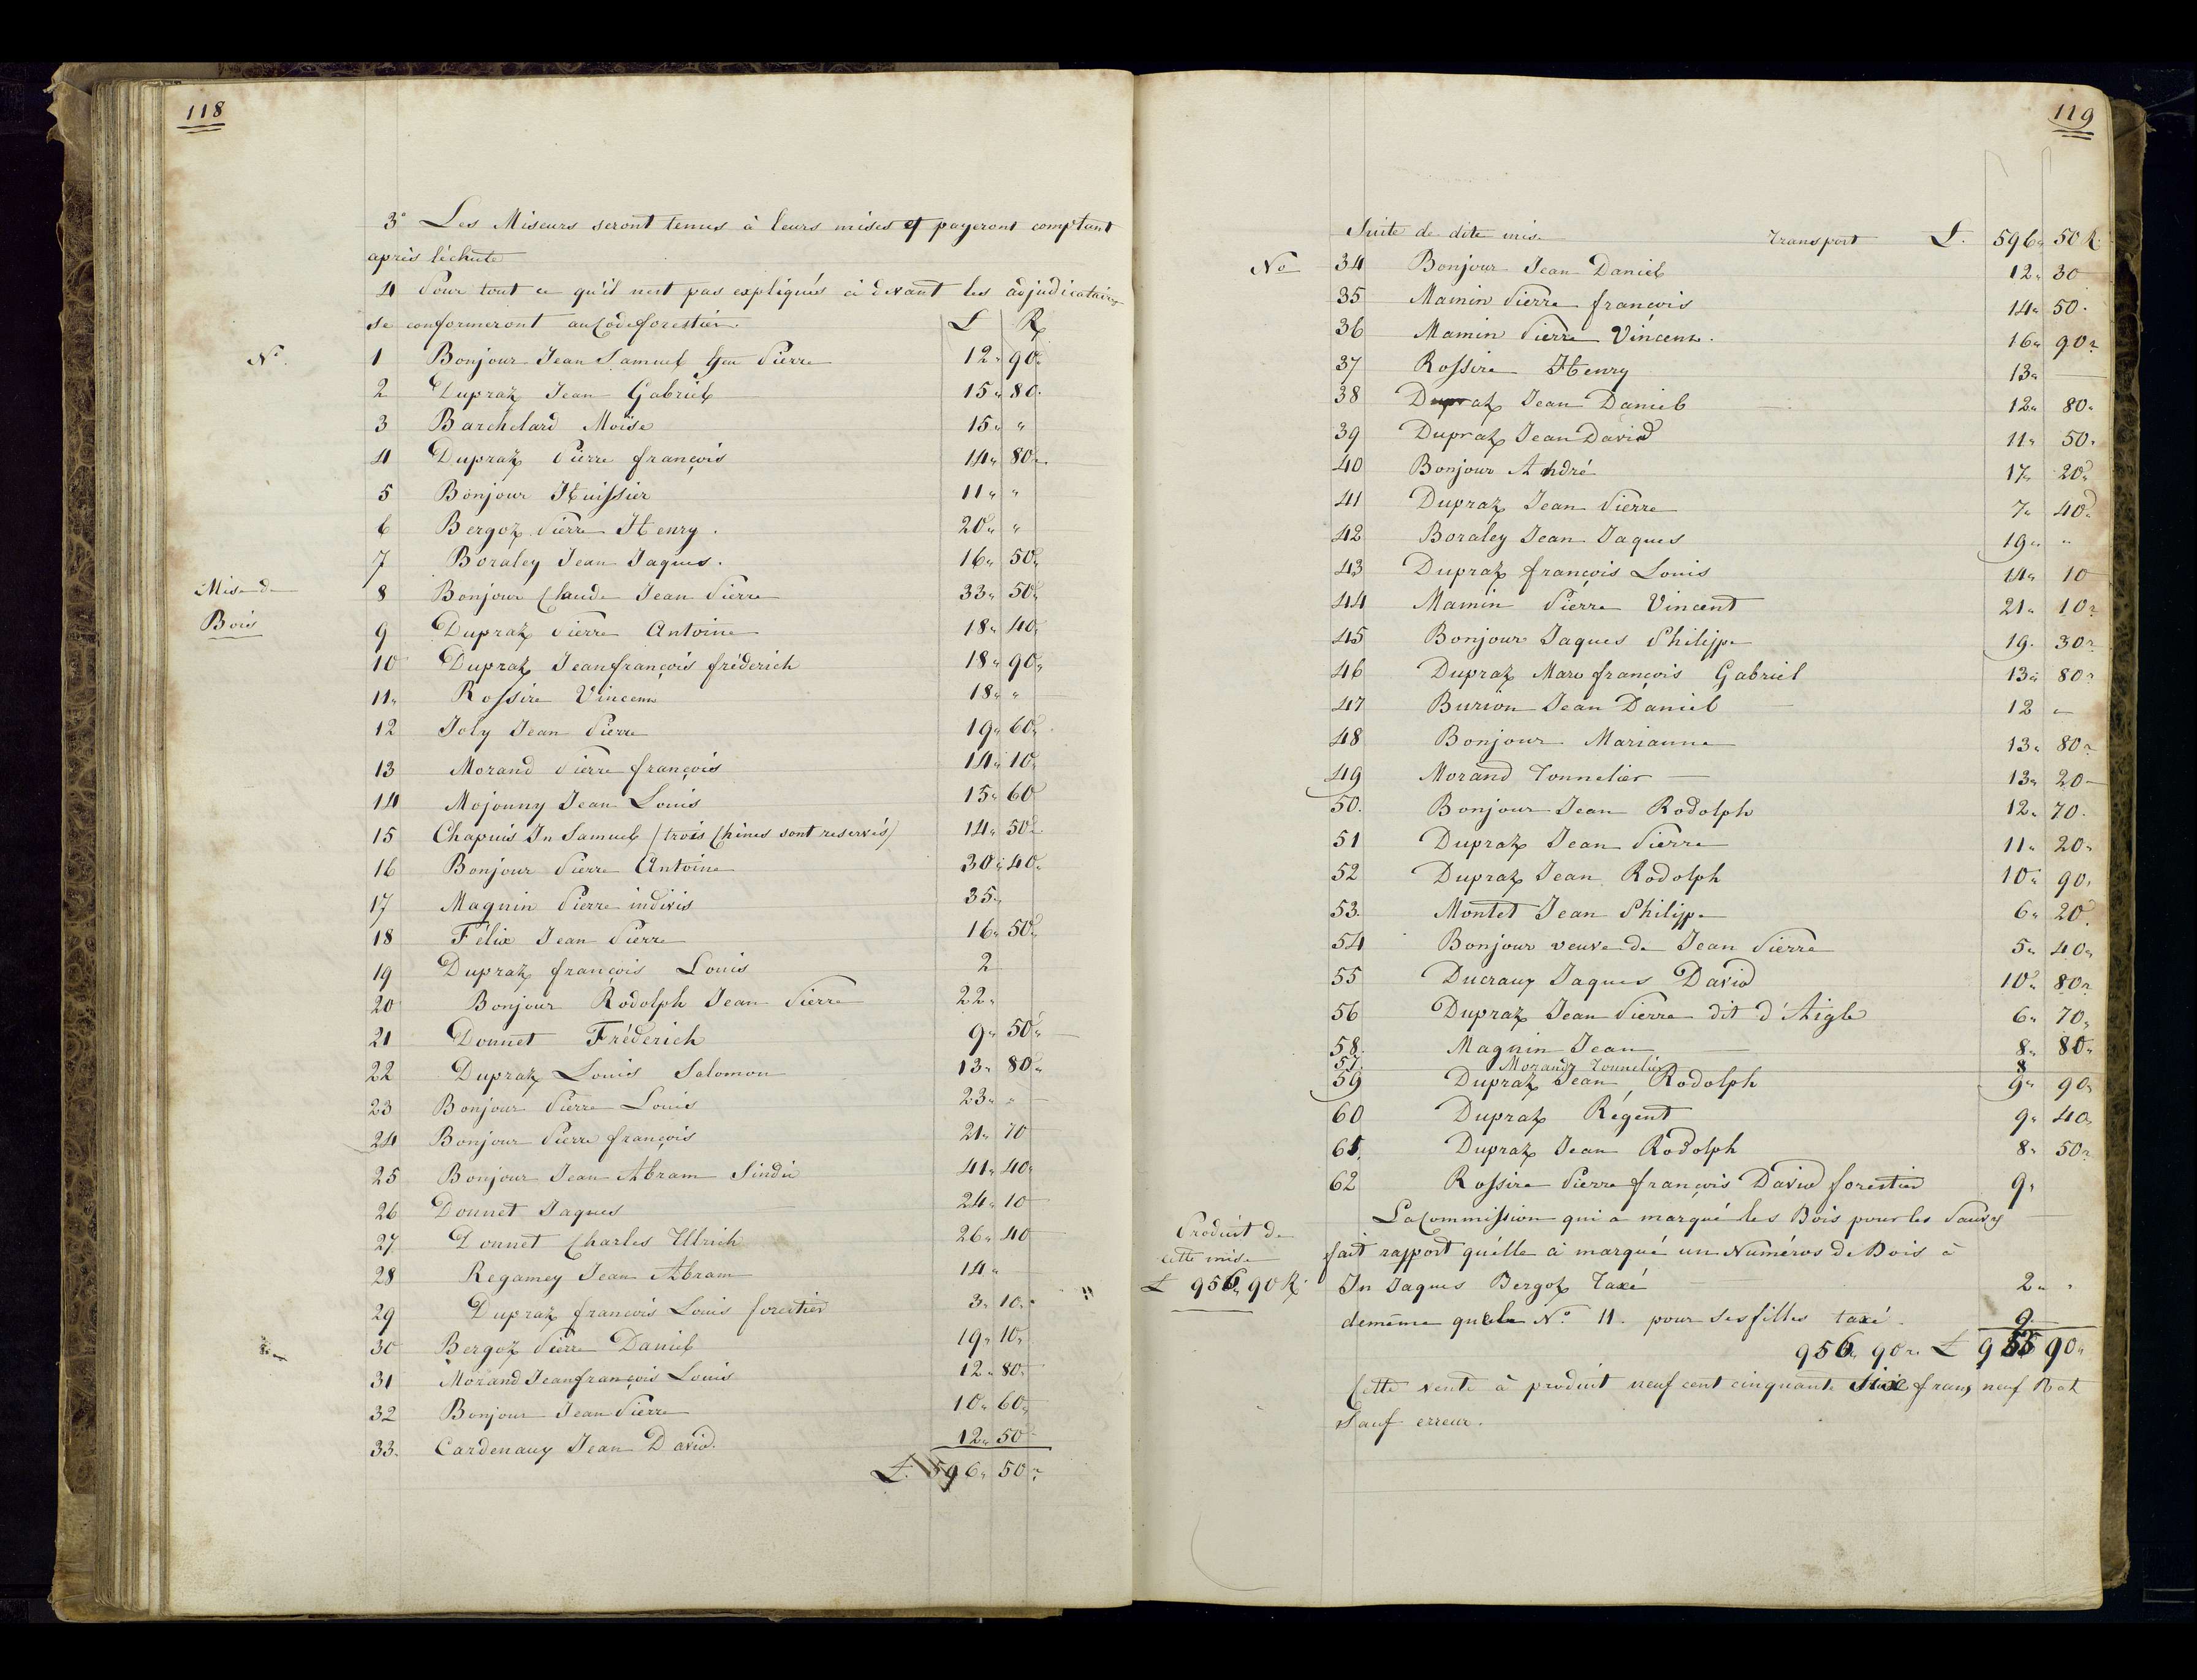 118
3° Les Miseurs seront tenus à leurs mises et payeront comptant
après léchute
4 Pour tout ce qu'il nest pas expliqués ci devant les adjudicataires
se conformeront au Code forestier. L R
N° 1 Bonjour Jean Samuel feu Pierre 12 " 90 "
2 Dupraz Jean Gabriel 15 " 80 "
3 Barchelard Moïse 15 " "
4 Dupraz Pierre françois 14 " 80 "
5 Bonjour Huissier 11 " "
6 Bergoz Pierre Henry . 20 " "
7 Boraley Jean Jaques . 16 " 50 "
Mise de
Bois
8 Bonjour Claude Jean Pierre 33 " 50 "
9 Dupraz Pierre Antoine 18 " 40 "
10 Dupraz Jean françois fréderich 18 " 90 "
11 " Rossire Vincent 18 " "
12 Joly Jean Pierre 19 " 60 "
13 Morand Pierre françois 14 " 10 "
14 Mojonny Jean Louis 15 " 60
15 Chapuis Jn Samuel (trois Chênes sont reservés) 14 " 50 "
16 Bonjour Pierre Antoine 30 " 40 "
17 Magnin Pierre indivis 35 "
18 Félix Jean Pierre 16 " 50 "
19 Dupraz françois Louis 2
20 Bonjour Rodolph Jean Pierre 22 "
21 Donnet Fréderich 9 " 50 "
22 Dupraz Louis Salomon 13 " 80 "
23 Bonjour Pierre Louis 23 " "
24 Bonjour Pierre françois 21 " 70
25 Bonjour Jean Abram Sindic 41 " 40 "
26 Donnet Jaques 24 " 10
27 Donnet Charles Ulrich 26 " 40
28 Regamey Jean Abram 14 "
29 Dupraz françois Louis forestier 3 " 10 "
30 Bergoz Pierre Daniel 19 " 10 "
31 Morand Jean françois Louis 12 " 80
32 Bonjour Jean Pierre 10 " 60 "
33. Cardenaux Jean David. 12 " 50
L. 596 " 50 "
119
Suite de dite mise Transport L. 596 " 50 R.
No 34 Bonjour Jean Daniel 12 " 30
35 Mamin Pierre françois 14 " 50 .
36 Mamin Pierre Vincent . 16 " 90 "
37 Rossire Henry 13 "
38 Dupraz Jean Daniel 12 " 80 "
39 Dupraz Jean David 11 " 50 "
40 Bonjour André 17 " 20 "
41 Dupraz Jean Pierre 7 " 40 "
42 Boraley Jean Jaques 19 " "
43 Dupraz françois Louis 14 " 10
44 Mamin Pierre Vincent 21 " 10 "
45 Bonjour Jaques Philippe 19 . 30 "
46 Dupraz Marc françois Gabriel 13 " 80 "
47 Burion Jean Daniel 12 "
48 Bonjour Marianne 13 " 80 "
49 Morand Tonnelier 13 " 20
50. Bonjour Jean Rodolph 12 " 70 .
51 Dupraz Jean Pierre 11 " 20 "
52 Dupraz Jean Rodolph 10 " 90 "
53. Montet Jean Philippe 6 " 20 "
54 Bonjour veuve de Jean Pierre 5 " 40 "
55 Ducraux Jaques David 10 " 80 "
56 Dupraz Jean Pierre dit d'Aigle 6 " 70 "
58. Magnin Jean 8 " 80 "
57. Morand Tonnelier 8
59 Dupraz Jean Rodolph 9 " 90 "
60 Dupraz Régent 9 " 40 "
61. Dupraz Jean Rodolph 8 " 50 "
62 Rossire Pierre françois David forestier 9 "
La Commission qui a marqué les Bois pour les Pauvres
fait rapport qu'elle à marqué un Numéros de Bois à
Produit de
cette mise
L 956 " 90 R.
Jn Jaques Bergoz Taxé 2 " "
demême que le N° 11. pour ses filles taxé . 9.
956 " 90 " L 955 90 "
Cette vente à produit neuf cent cinquante Sixe francs neuf Batz
Sauf erreur.